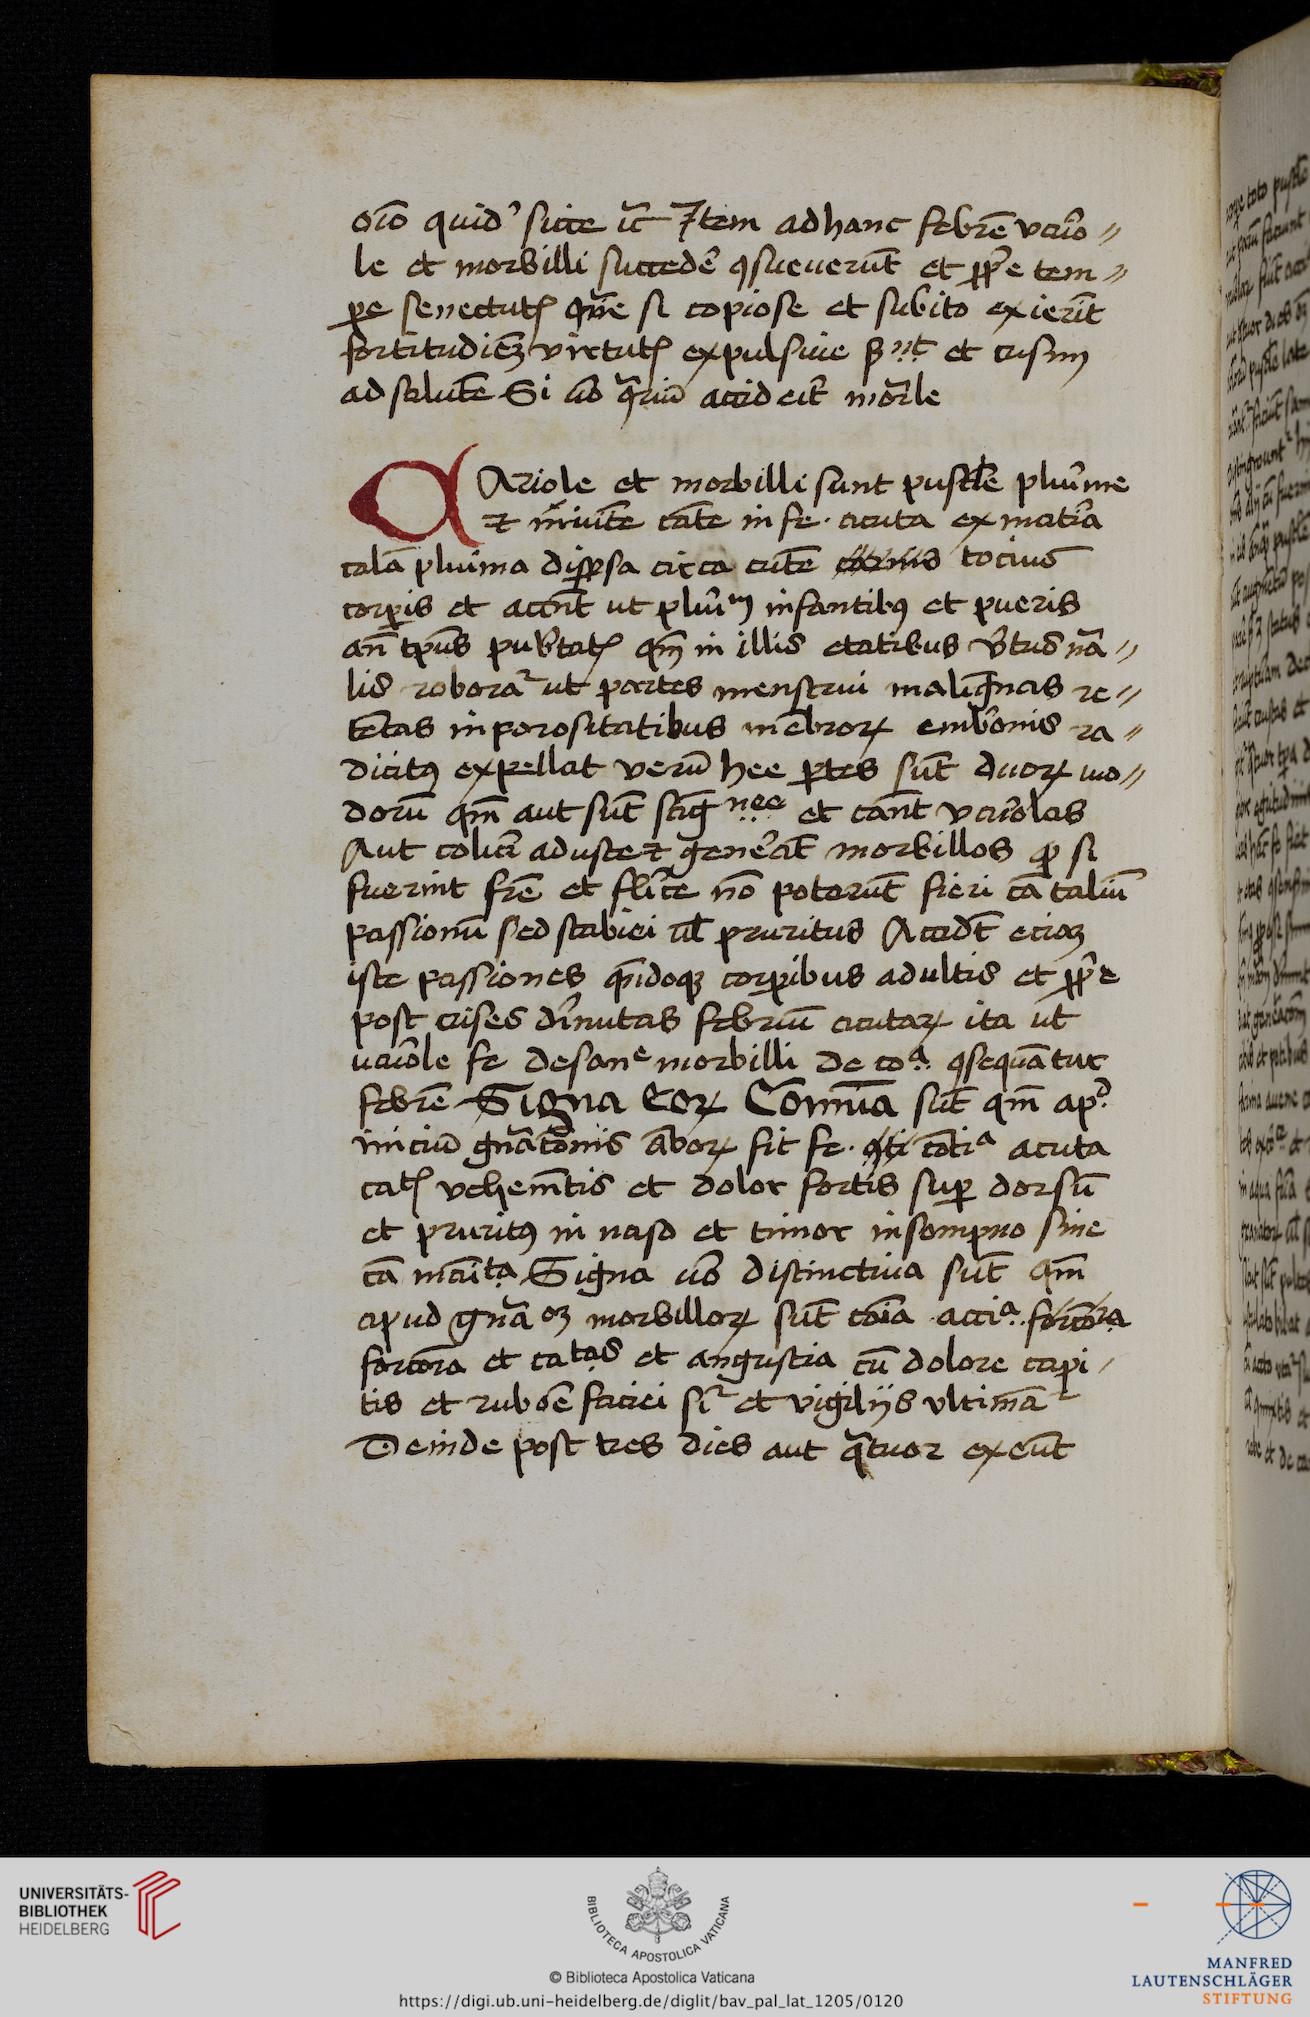 oīo quid' sicce ic̄ Item ad hanc febrē vario//
le et morbilli succedē ꝯsueuerūt et ꝓpͥe tem//
ꝑe senectutꝭ qn̄e si copiose et subito exierīt
fortitudīeꝫ virtutꝭ expulsiue et crisim
ad salutē Si v̄o accideīt mor̄le

Ariole et morbilli sunt pustl̄e pluͥme
in fe. acuta ex mat̄ia
cal̄a pluima disꝑsa circa cutē tocius
corꝑis et ut pluͥm infantibꝰ et pueris
an̄ tꝑus pub̄tatꝭ qm̄ in illis etatibus v̄tus nā//
lis roborat̄ ut partes menstrui malignas re//
tētas in porositatibus mēbroꝝ embͥonis ra//
dicitꝰ expellat verū hee ꝑtes sūt duoꝝ mo//
dorū qm̄ aut sūt et cān̄t variolas
Aut colic̄i aduste ⁊ genēāt morbillos si
fuerint frē et fl̄ice nō poterūt fieri cā taliū
passionū sed scabiei ul̄ pruritus Accidt̄ eciaꝫ
iste passiones qn̄doqꝫ corꝑibus adultis et ꝓpͥe
post crises dīnutas febriū acutaꝝ ita ut
variole fe de sane morbilli de coa. ꝯsequātur
febrē Signa Eoꝝ Comūia sūt qm̄ apͩ.
iniciū gn̄acōnis aboꝝ fit fe. cōtia acuta
catꝭ vehemētis et dolor fortis suꝑ dorsū
et pruritꝰ in naso et timor in sompno sine
cā Signa v̄o distinctiua sūt qm̄
apud gn̄aoꝫ morbilloꝝ sūt cōia accia. forcōra
forcōra et catas et angustia cū dolore capi/
tis et rubōe faciei sil̄ et vigilijs vltimāt̄
Deinde post tres dies aut qͣtuor exeūt

UNIVERSITÄTS-
BIBLIOTHEK
HEIDELBERG
BIBLIOTECA APOSTOLICA VATICANA
© Biblioteca Apostolica Vaticana
https://digi.ub.uni-heidelberg.de/diglit/bav_pal_lat_1205/0120
MANFRED
LAUTENSCHLÄGER
STIFTUNG